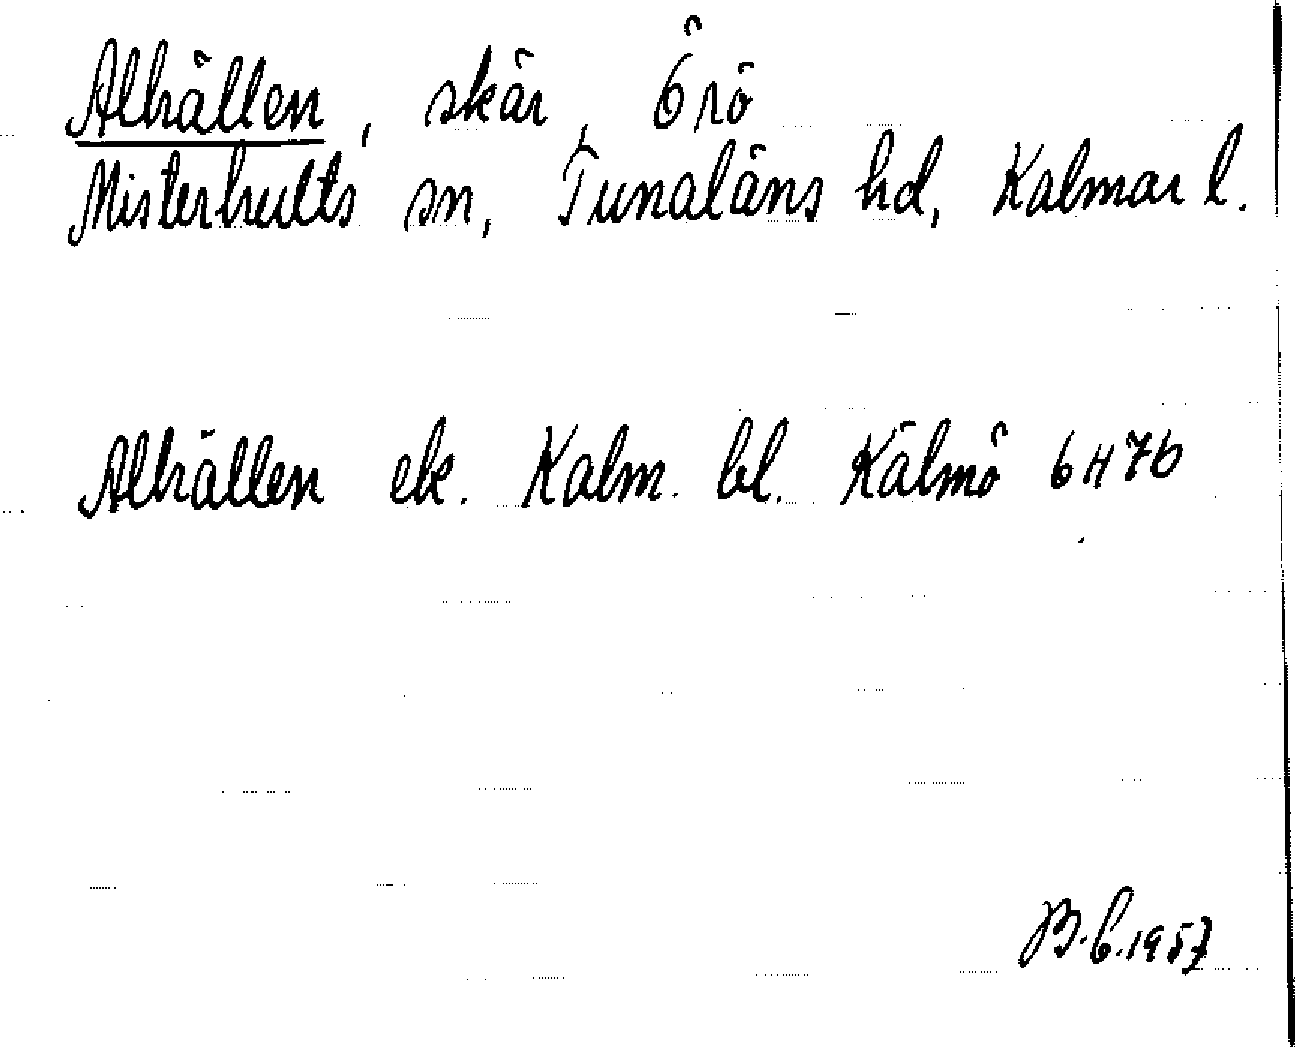 Alhällen, skär, Örö
Misterhults sn, Tunaläns hd, Kalmar l.
Alhällen ek. Kalm. bl. Kälmö 6H7b
B.C. 1957